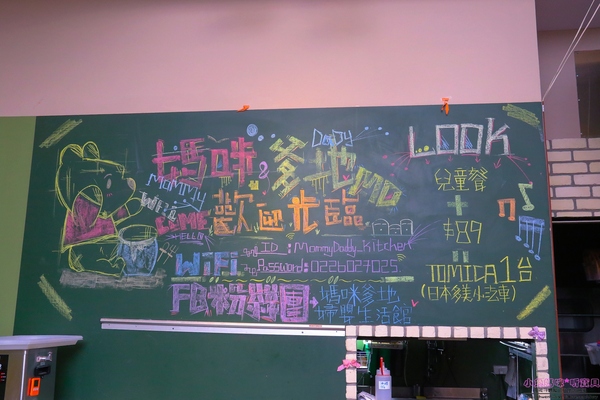 媽咪&爹地
MOMMY
DaDy
WELCOME
HELLO
歡迎光臨
WiFi ID：MommyDady.kitchen
Password：0226027025
FB粉絲團→媽咪爹地
婦嬰生活館
LOOK
兒童餐
+
$89
=
TOMICA 1台
(日本多美小汽車)